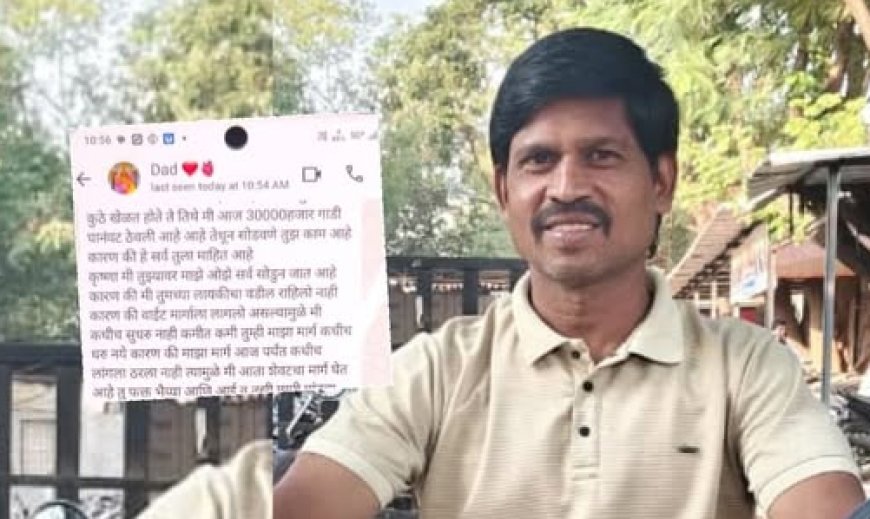 10:56
Dad ❤️
last seen today at 10:54 AM
कुठे खेळत होते ते तिथे मी आज 30000हजार गाडी
ठेवली आहे आहे तेथून सोडवणे तुझ काम आहे
कारण की हे सर्व तुला माहित आहे
कृष्णा मी तुझ्यावर माझे ओझे सर्व सोडुन जात आहे
कारण की मी तुमच्या लायकीचा वडील राहिलो नाही
कारण की वाईट मार्गाला लागलो असल्यामुळे मी
कधीच सुधरु नाही कमीत कमी तुम्ही माझा मार्ग कधीच
धरु नये कारण की माझा मार्ग आज पर्यंत कधीच
लांगला ठरला नाही त्यामुळे मी आता शेवटचा मार्ग घेत
आहे तु फक्त भैय्या आणि आई